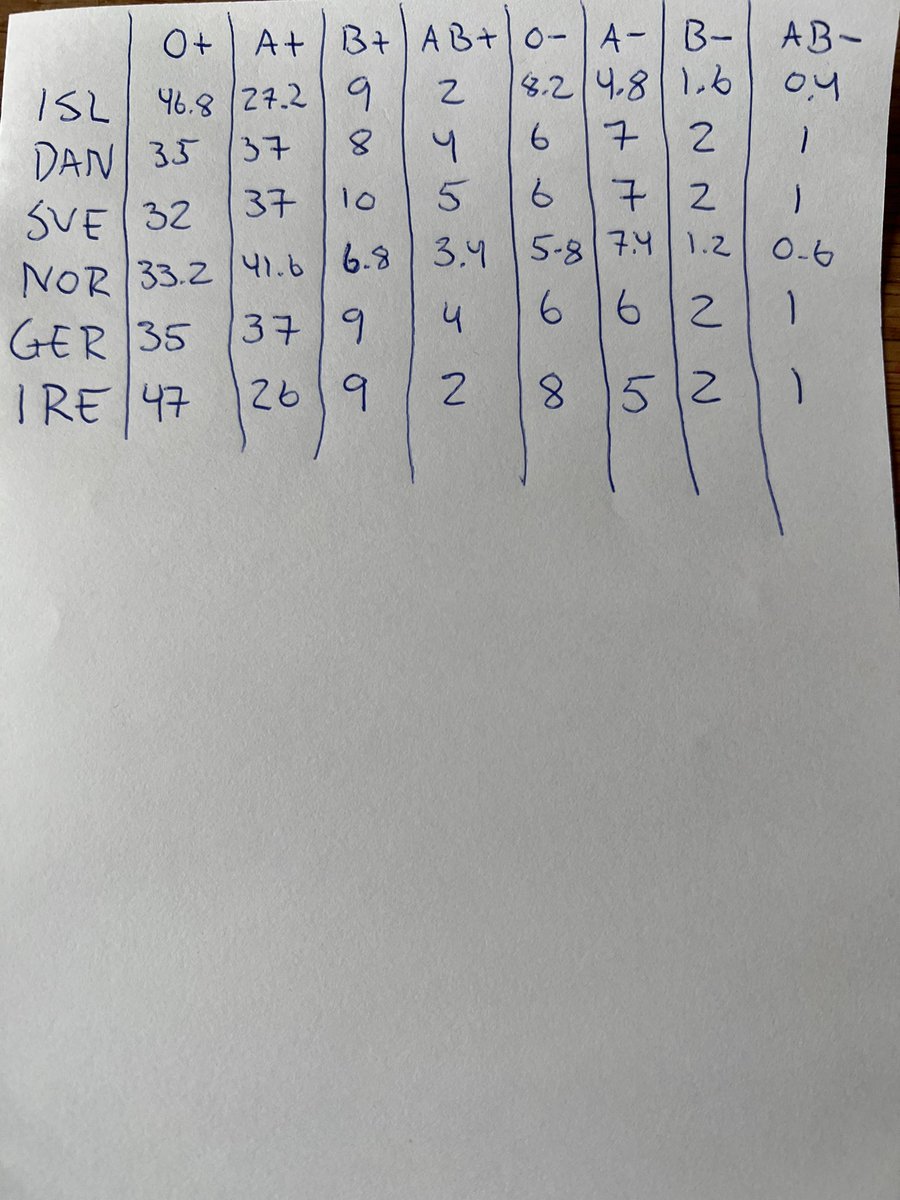 O+ A+ B+ AB+ O- A- B- AB-
ISL 46.8 27.2 9 2 8.2 4.8 1.6 0.4
DAN 35 37 8 4 6 7 2 1
SVE 32 37 10 5 6 7 2 1
NOR 33.2 41.6 6.8 3.4 5-8 7.4 1.2 0-6
GER 35 37 9 4 6 6 2 1
IRE 47 26 9 2 8 5 2 1